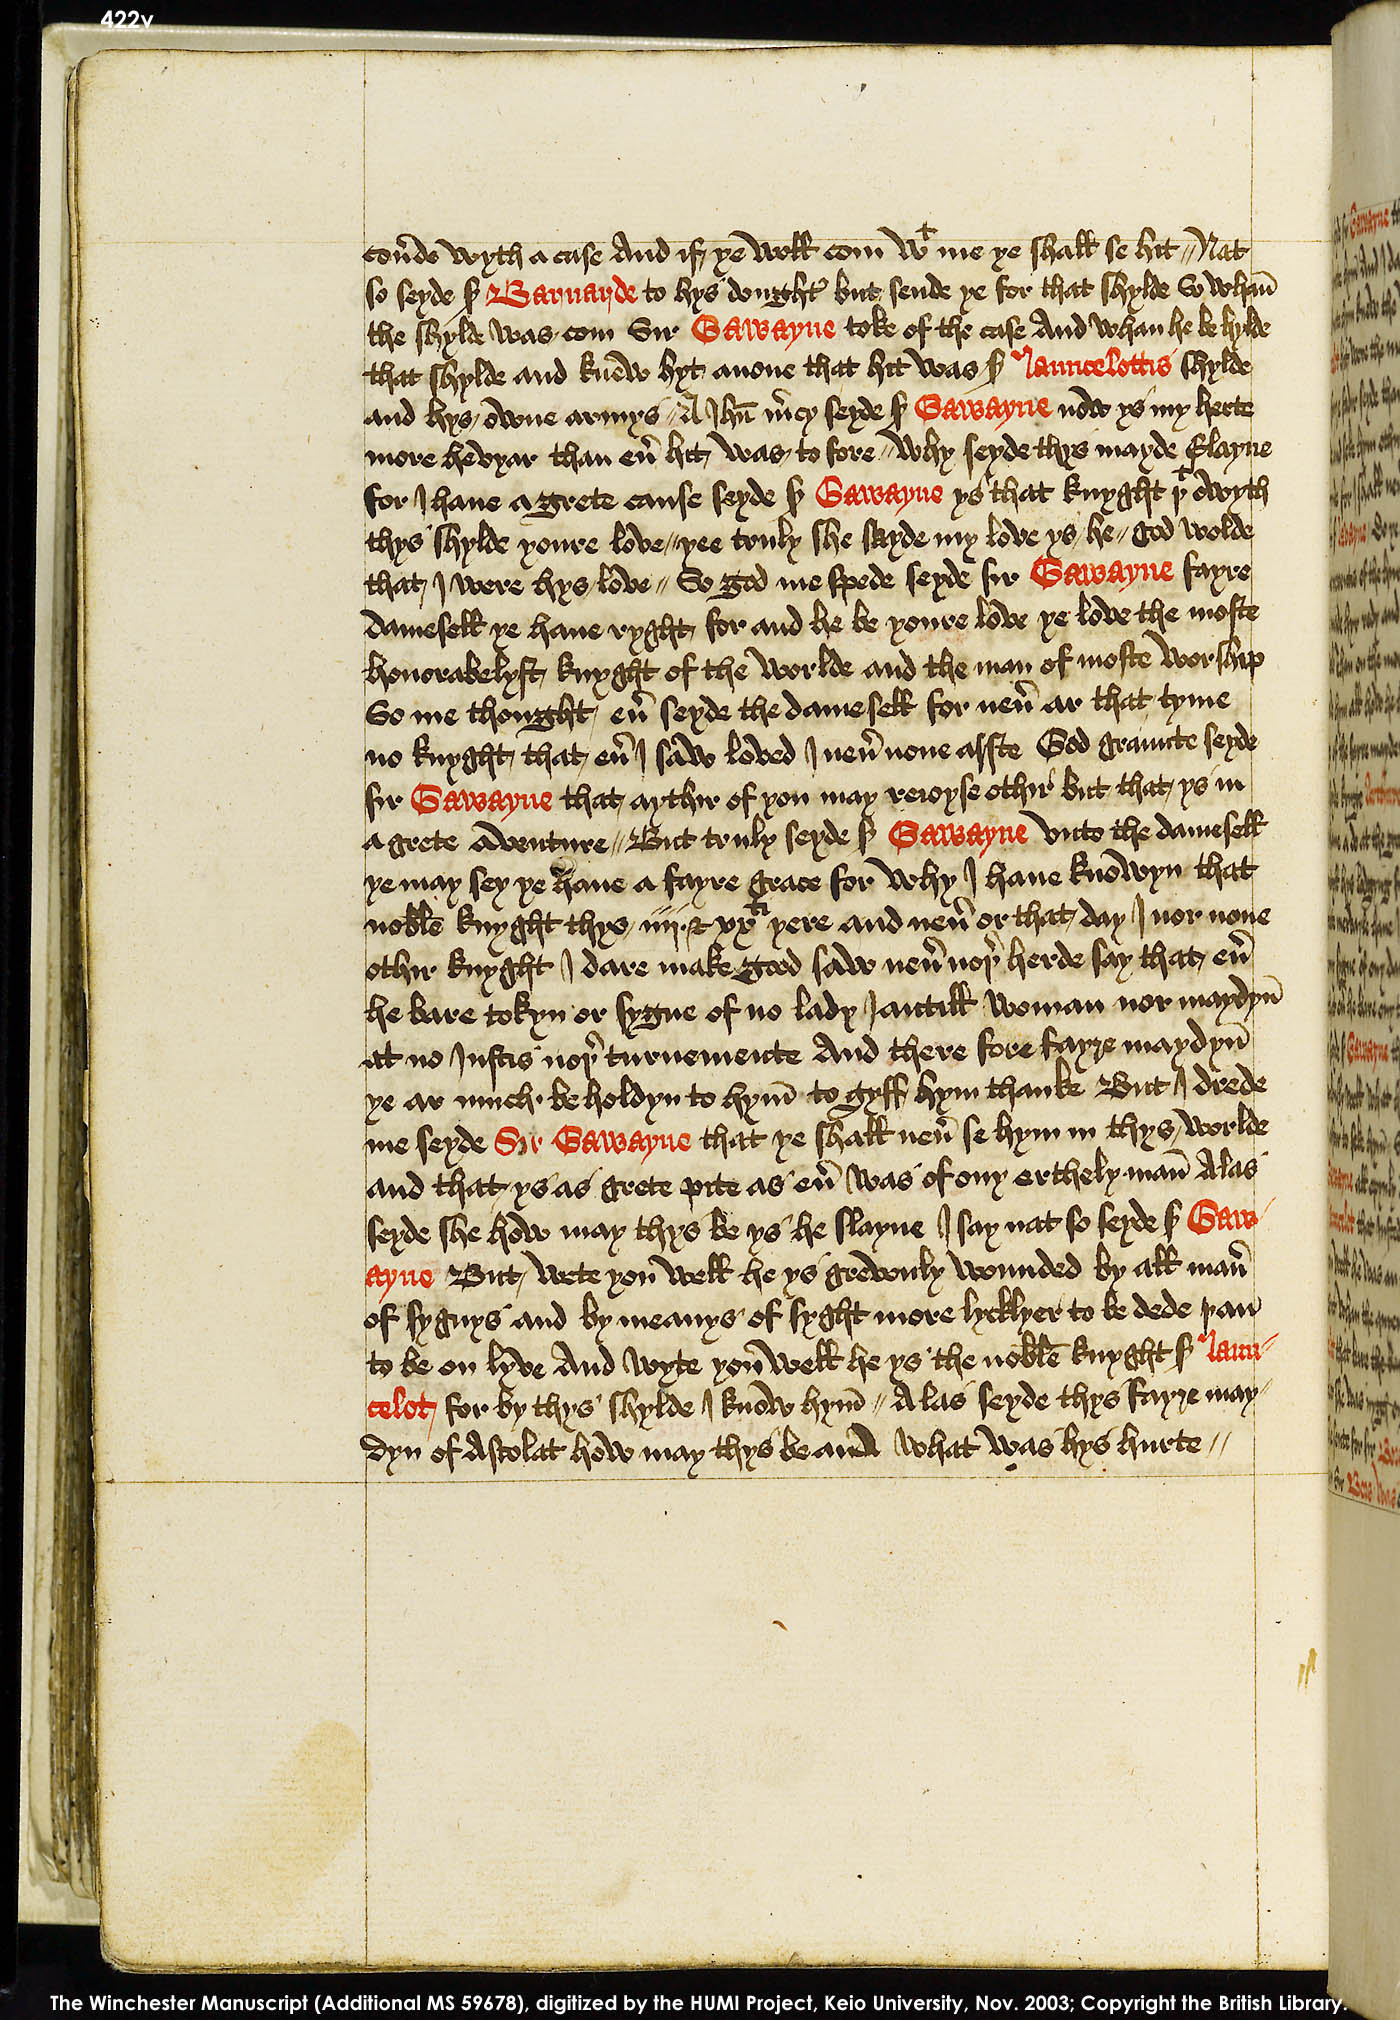 422v
cou̔de wyth a case And if ye woll com wt me ye shall se hit // Nat
so seyde sr Barnarde to hys doughtr but sende ye for that shylde So whan̄
the shylde was com Sir Gawayne toke of the case And whan he be hylde
that shylde and knew hyt anone that hit was sr Launcelottis shylde
and hys owne armys // A Jhū m̄cy seyde sr Gawayne now ys my herte
more hevyar than eu̔ hit was to fore // Why seyde thys mayde Elayne
for I haue a grete cause seyde sr Gawayne ys that knyght þt owyth
thys shylde youre love // yee truly she sayde my love ys he // God wolde
that I were hys love // So god me spede seyde sir Gawayne fayre
damesell ye haue ryght for and he be youre love ye love the moste
honorabelyst knyght of the worlde and the man of moste worship
So me thought eu̔ seyde the damesell for neu̔ ar that tyme
no knyght that eu̔ I saw loved I neu̔ none arste God graunte seyde
sir Gawayne that aythir of you may reioyse othir but that ys in
a grete aventure // But truly seyde sr Gawayne vnto the damesell
ye may sey ye haue a fayre grace for why I haue knowyn that
noble knyght thys iiij & xxti yere and neu̔ or that day I nor none
othir knyght I dare make good saw neu̔ noþr herde say that eu̔
he bare tokyn or sygne of no lady Jantill woman nor maydyn̄
at no Justis noþr turnemente And there fore fayre maydyn̄
ye ar much be holdyn to hym̄ to gyff hym thanke But I drede
me seyde Sir Gawayne that ye shall neu̔ se hym in thys worlde
and that ys as grete pite as eu̔ was of ony erthely man̄ Alas
seyde she how may thys be ys he slayne I say nat so seyde sr Gaw-
ayne But wete you well he ys grevously wounded by all man̔
of sygnys and by meanys of syght more lycklyer to be dede þan
to be on lyve And wyte you well he ys the noble knyght sr Laun-
celot for by thys shylde I know hym̄ // Alas seyde thys fayre may-
dyn of Astolat how may thys be and what was hys hurte //
The Winchester Manuscript (Additional MS 59678), digitized by the HUMI Project, Keio University, Nov. 2003; Copyright the British Library.